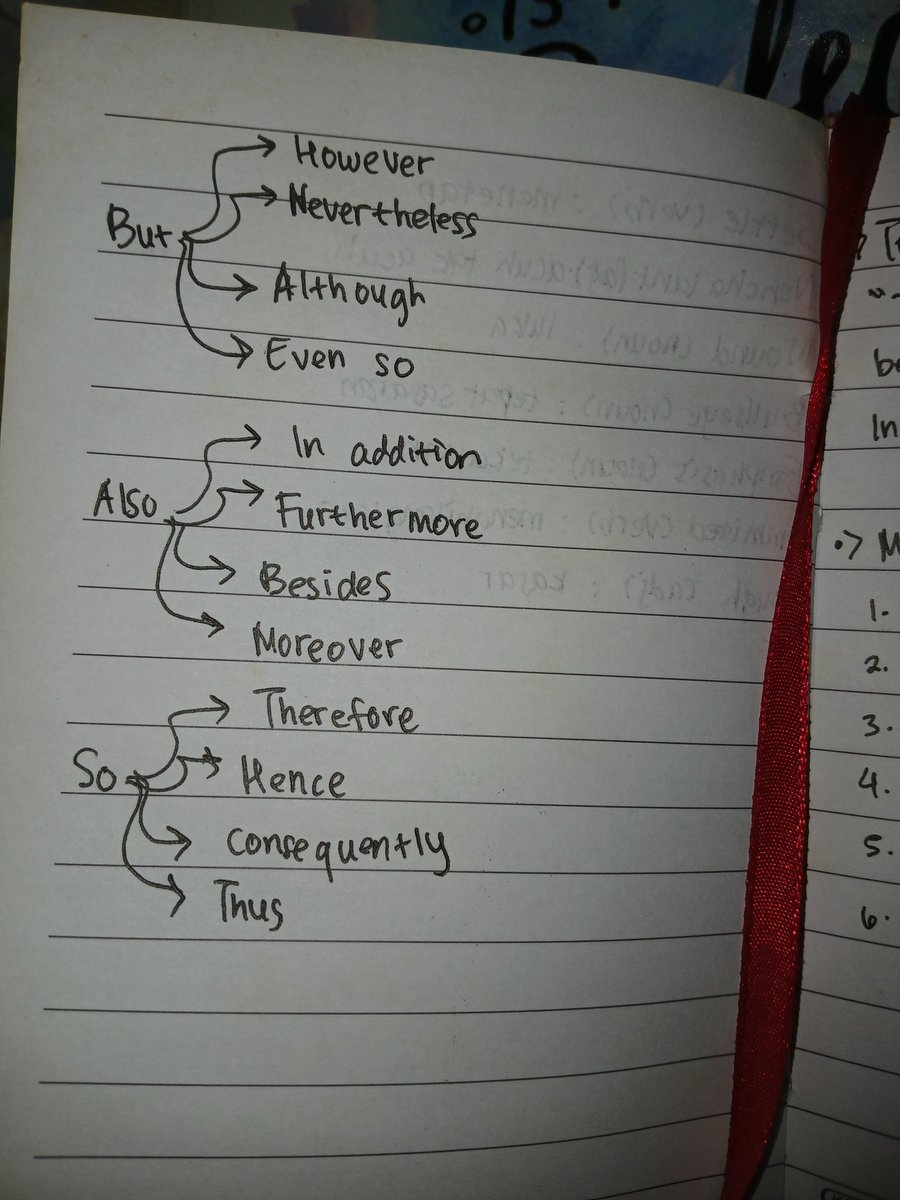 However
Nevertheless
But
Although
Even so
In addition
Also
Furthermore
Besides
Moreover
Therefore
So
Hence
Consequently
Thus
In
1.
2.
3.
4.
5.
6.